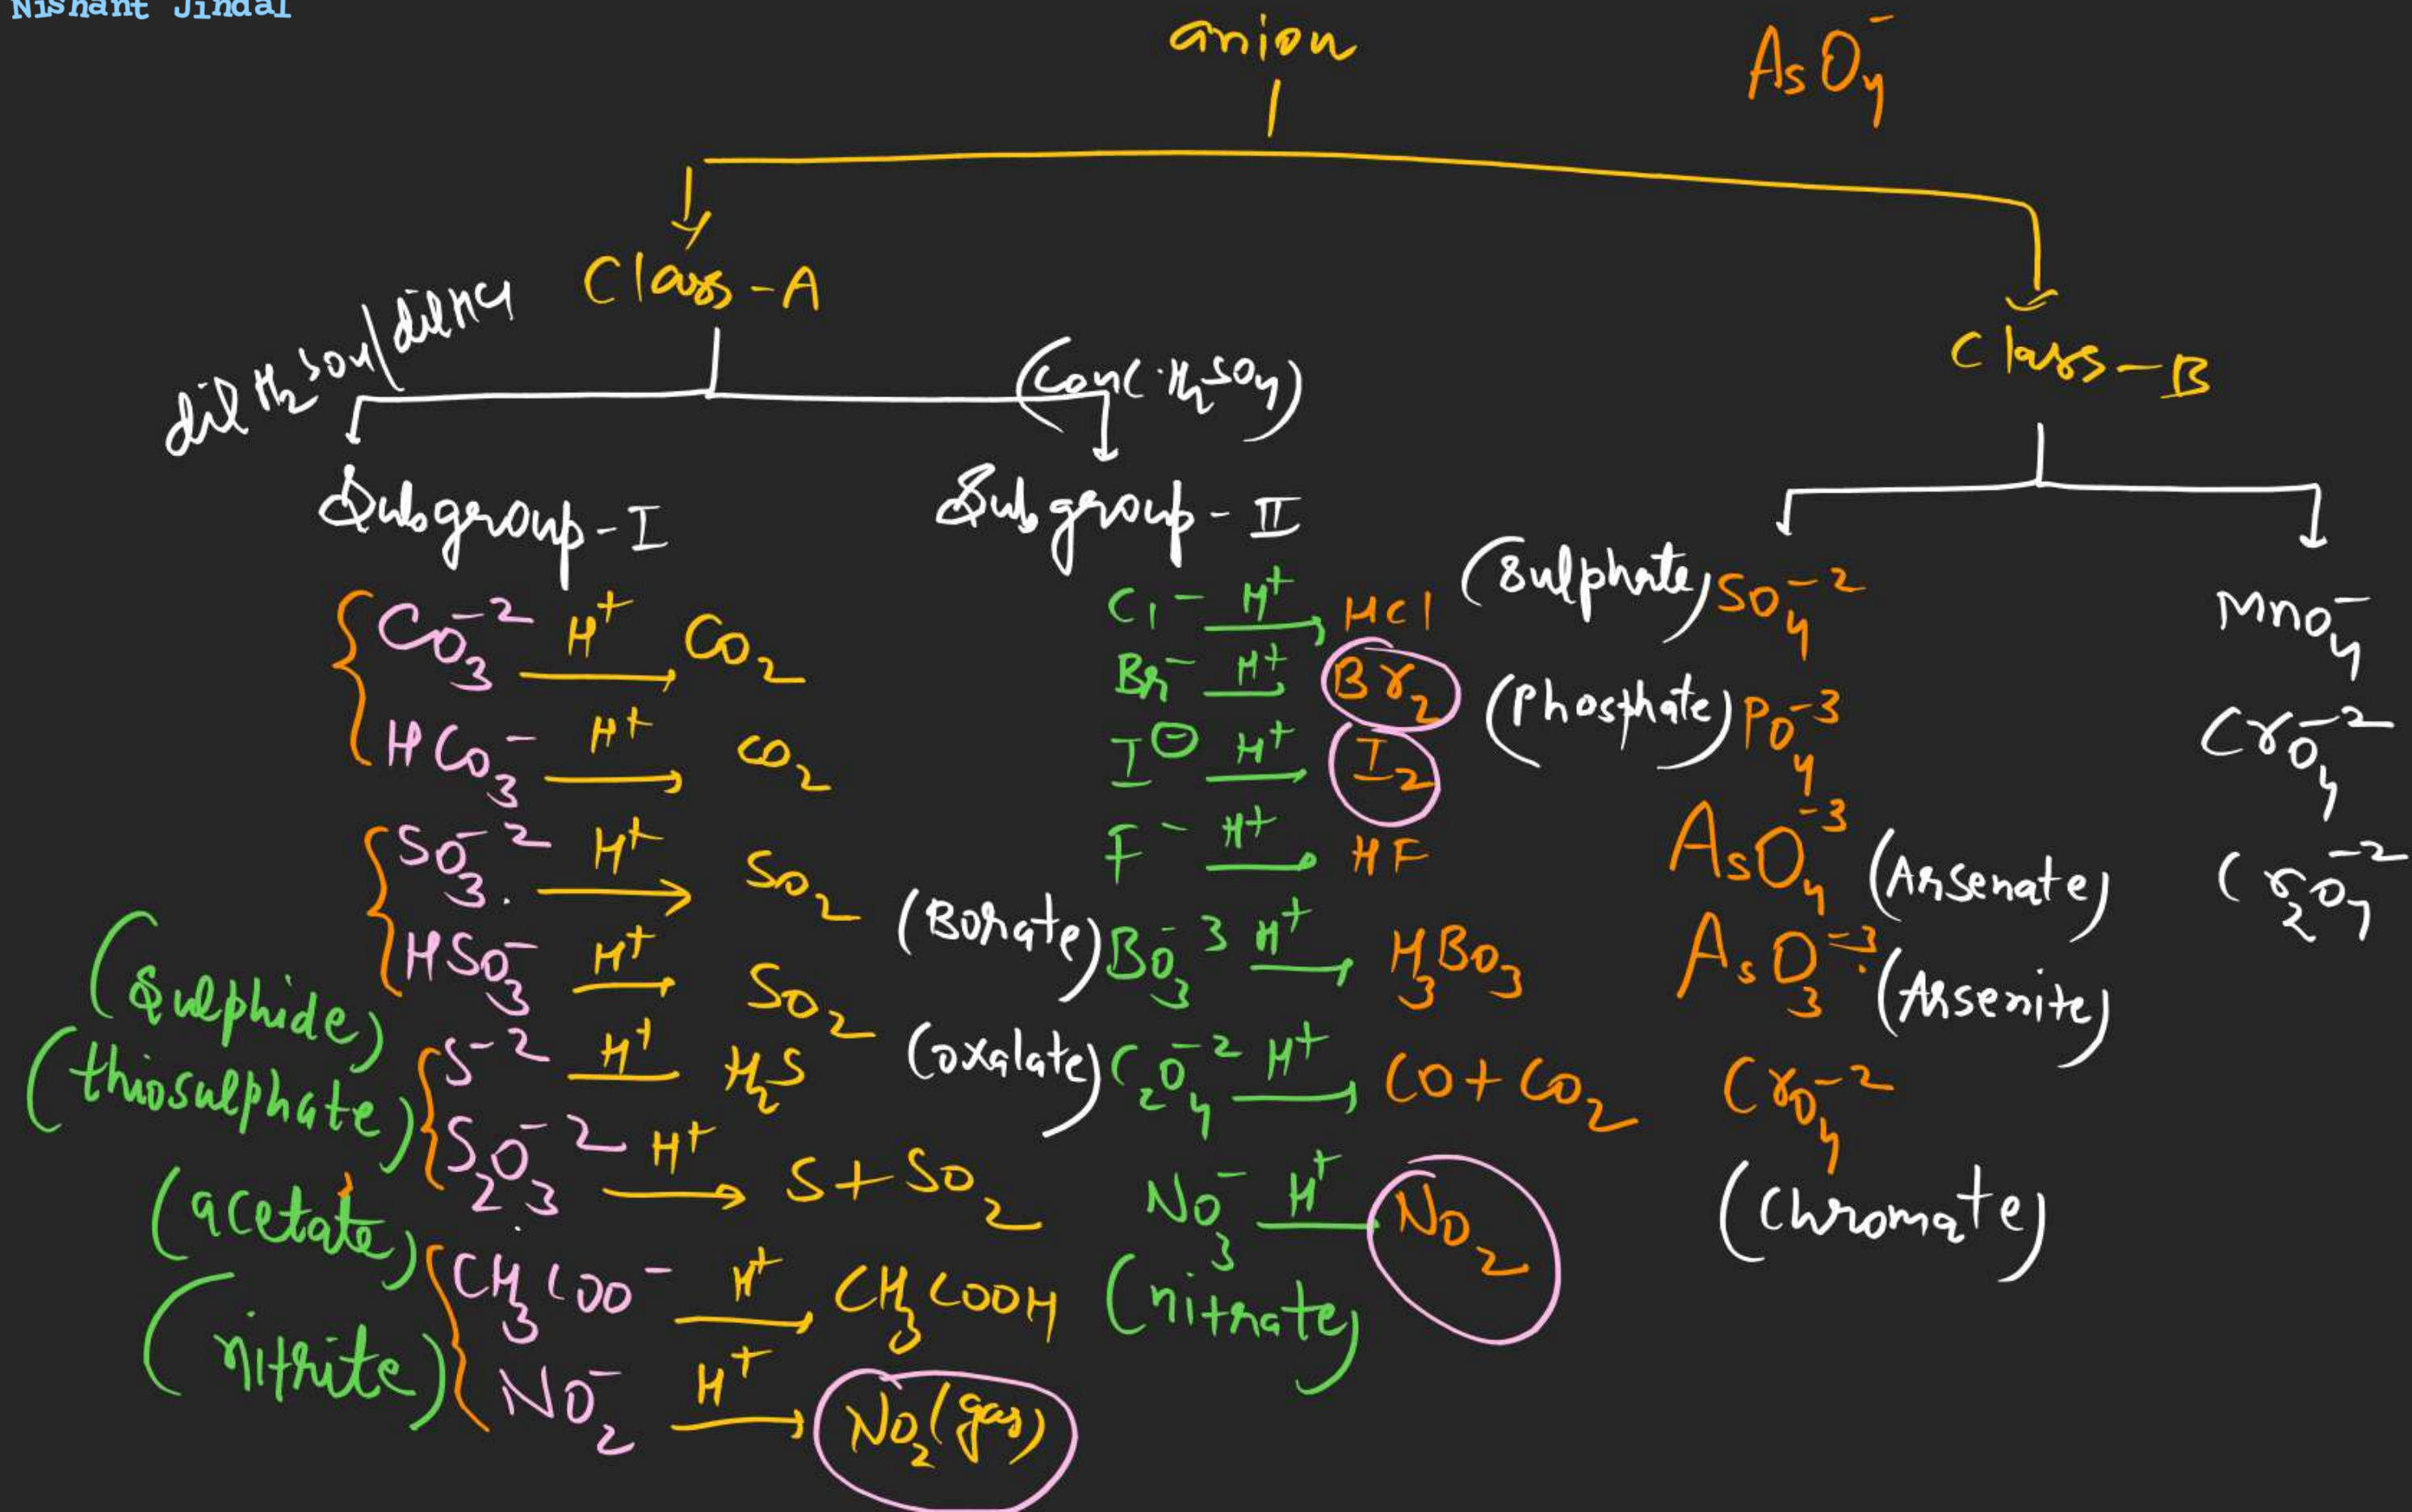 Nishant Jindal
anion
AsO₄⁻
Class-A
Class-B
dil H₂SO₄/dil HCl
(Conc. H₂SO₄)
Subgroup-I
CO₃⁻² H⁺ CO₂
HCO₃⁻ H⁺ CO₂
SO₃⁻² H⁺ SO₂
HSO₃⁻ H⁺ SO₂
(Sulphide) S⁻² H⁺ H₂S
(thiosulphate) S₂O₃⁻² H⁺ S + SO₂
(acetate) CH₃COO⁻ H⁺ CH₃COOH
(nitrite) NO₂⁻ H⁺ NO₂(gas)
Subgroup-II
Cl⁻ H⁺ HCl
Br⁻ H⁺ Br₂
I⊖ H⁺ I₂
F⁻ H⁺ HF
(Borate) BO₃⁻³ H⁺ H₃BO₃
(oxalate) C₂O₄⁻² H⁺ CO + CO₂
NO₃⁻ H⁺ NO₂
(nitrate)
(Sulphate) SO₄⁻²
(Phosphate) PO₄⁻³
AsO₄⁻³ (Arsenate)
AsO₃⁻³ (Arsenite)
CrO₄⁻²
(Chromate)
MnO₄⁻
CrO₄⁻²
Cr₂O₇⁻²